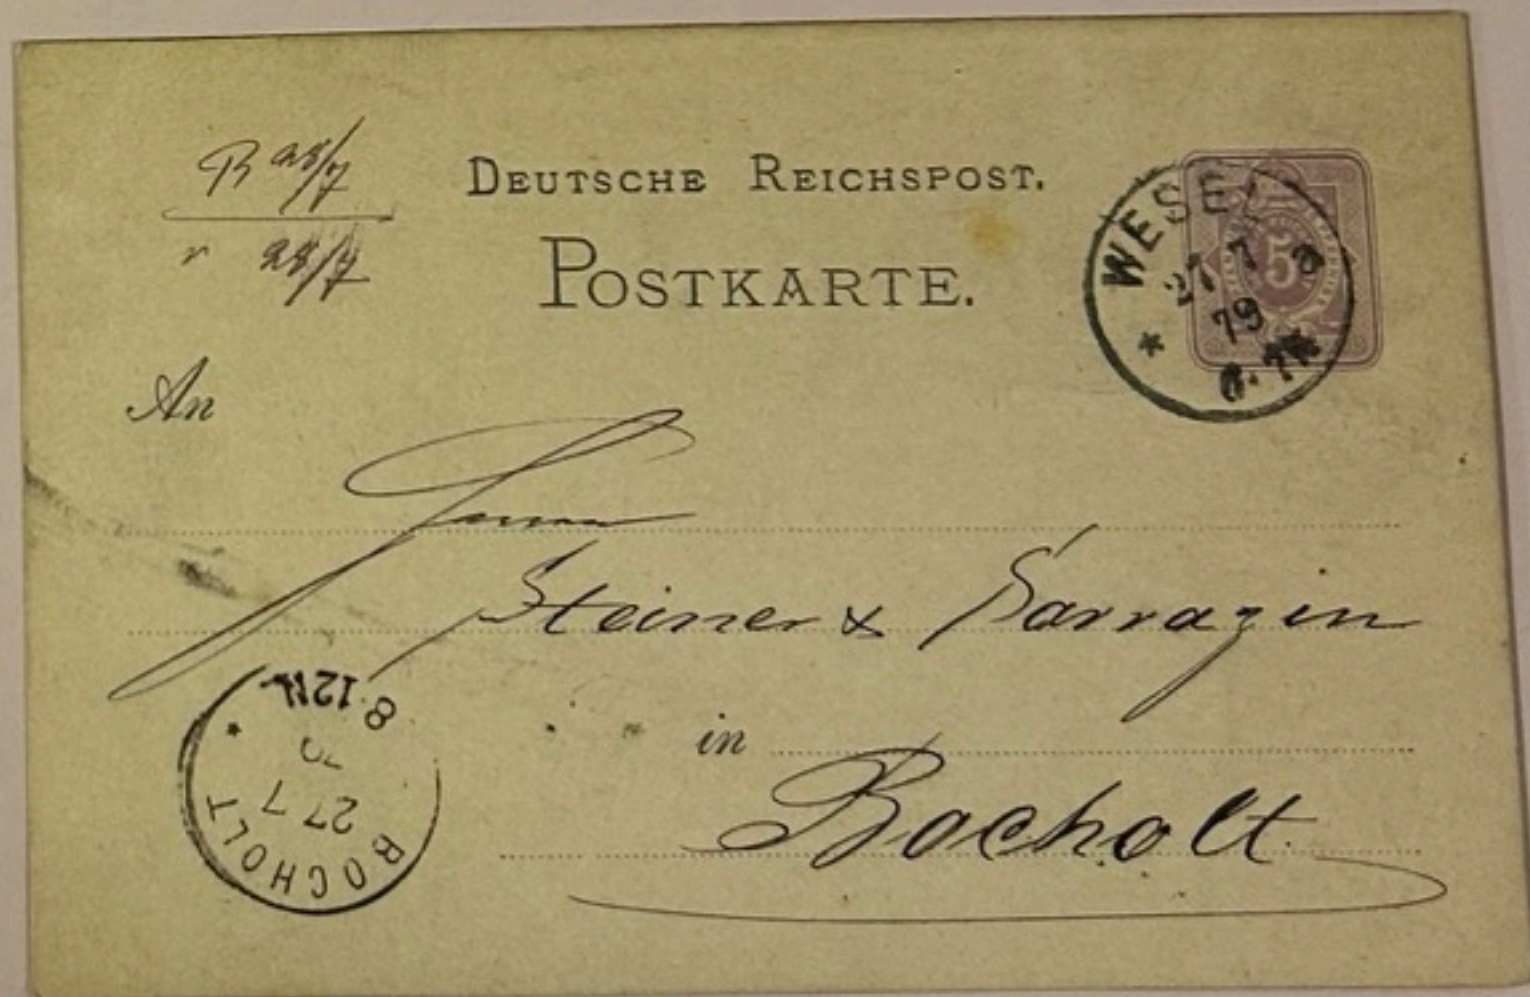 B 28/7
r 28/7
DEUTSCHE REICHSPOST.
POSTKARTE.
WESEL
27 7 a
79
6-7N
5
An
Herren
Steiner & Sarrazin
in
Bocholt
8-12N
27 7
BOCHOLT